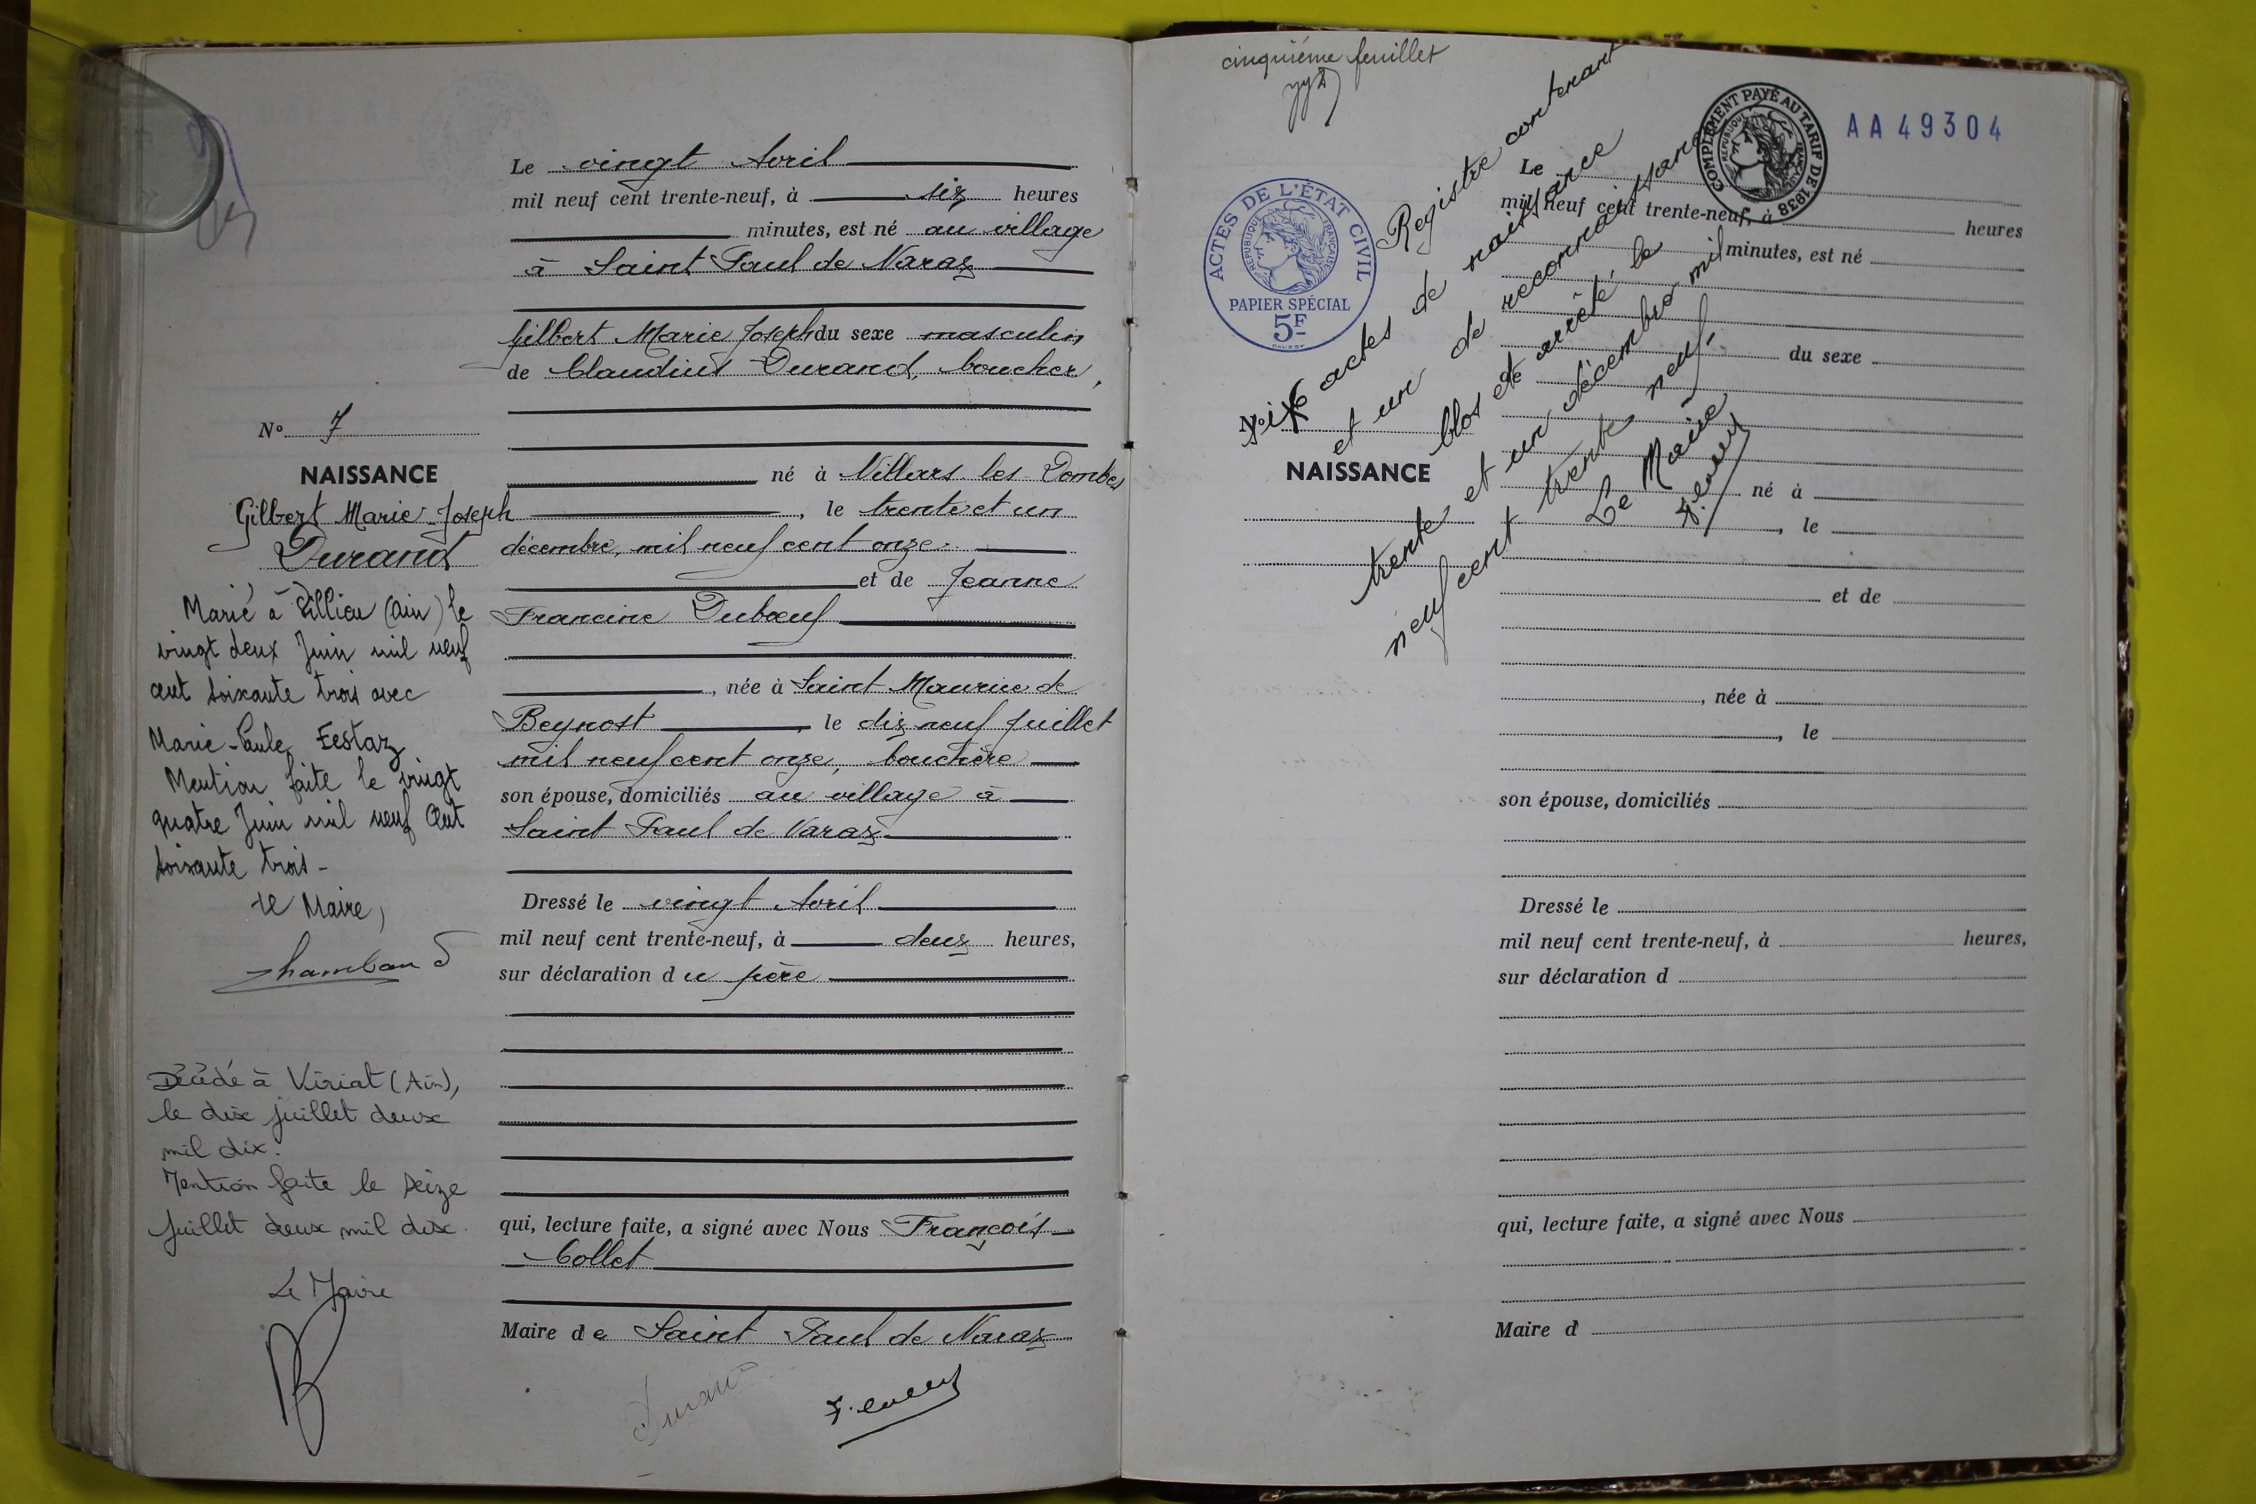 Le vingt Avril
mil neuf cent trente-neuf, à six heures
minutes, est né au village
à Saint Paul de Varax
Gilbert Marie Joseph du sexe masculin
de Claudius Durand, boucher,
né à Villars les Dombes
, le trente et un
décembre, mil neuf cent onze.
et de Jeanne
Francine Dubœuf
, née à Saint Maurice de
Beynost, le dix neuf Juillet
mil neuf cent onze, bouchère
son épouse, domiciliés au village à
Saint Paul de Varax
Dressé le vingt Avril
mil neuf cent trente-neuf, à deux heures,
sur déclaration du père
qui, lecture faite, a signé avec Nous François
Collet
Maire de Saint Paul de Varax
Durand
No 7
NAISSANCE
Gilbert Marie Joseph
Durand
Marié à (Ain) le
vingt deux Juin mil neuf
cent soixante trois avec
Marie-Paule
Mention faite le vingt
quatre Juin mil neuf cent
soixante trois -
Le Maire,
Décédé à Viriat (Ain),
le dix juillet deux
mil dix.
Mention faite le seize
juillet deux mil dix.
Le Maire
cinquième feuillet
AA49304
COMPLÉMENT PAYÉ AU TARIF DE 1938
RÉPUBLIQUE FRANÇAISE
ACTES DE L'ÉTAT CIVIL
RÉPUBLIQUE FRANÇAISE
PAPIER SPÉCIAL
5F
Registre contenant
actes de naissance
et un de reconnaissance
clos et arrêté le
trente et un décembre mil
neuf cent trente neuf.
Le Maire
No
NAISSANCE
Le
mil neuf cent trente-neuf, à heures
minutes, est né
du sexe
de
né à
, le
et de
, née à
, le
son épouse, domiciliés
Dressé le
mil neuf cent trente-neuf, à heures,
sur déclaration d
qui, lecture faite, a signé avec Nous
Maire d